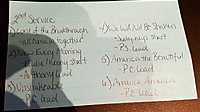 2nd Service
1) Lord of the Breakthrough
- all come in together
2) New Every Morning
- Anthony lead
3) Unshakeable
- PC lead
4) We Will Not Be Shaken
- PS lead
5) America the Beautiful
- PC lead
6) America, America
- PC lead